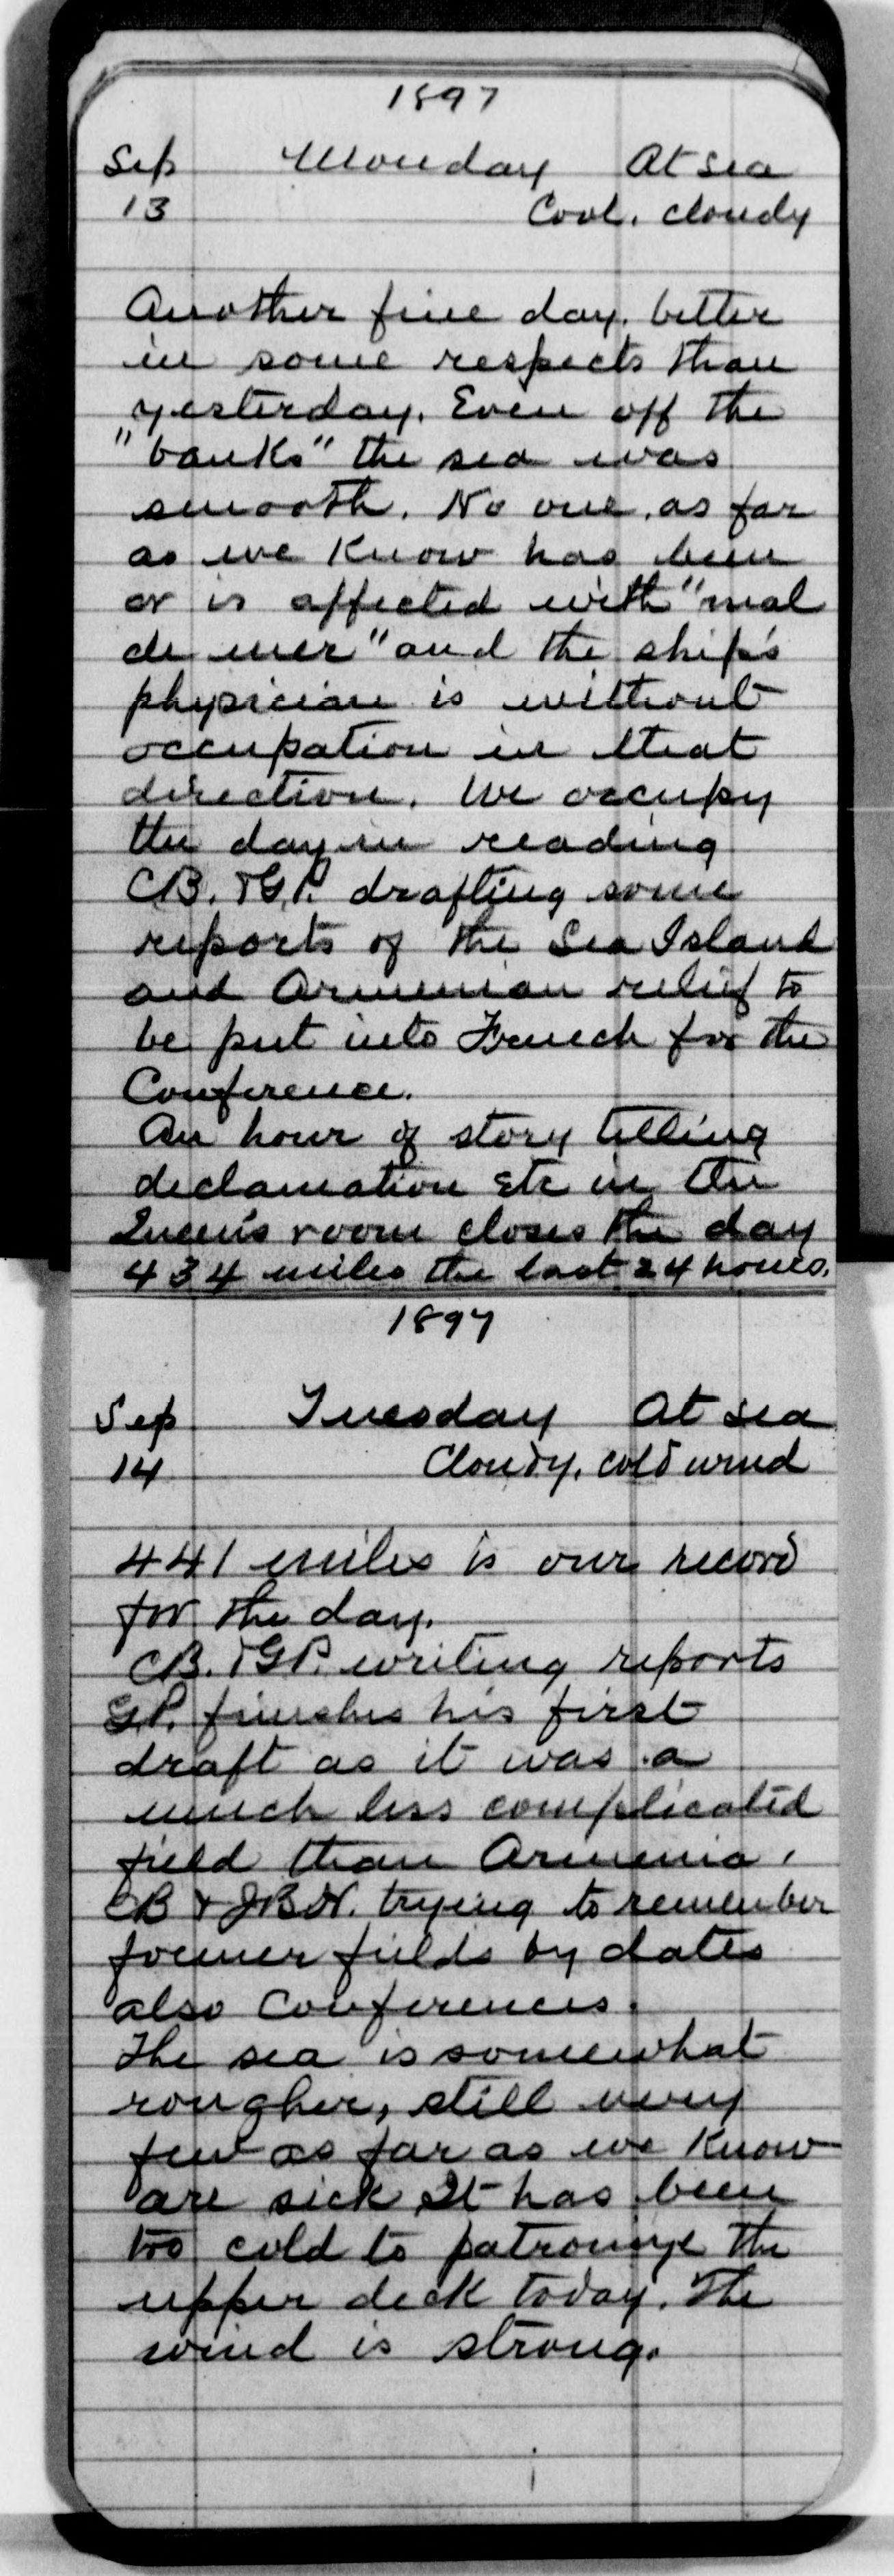 1897
Sep Monday At sea
13 Cool. cloudy
Another fine day. better
in some respects than
yesterday. Even off the
"banks" the sea was
smooth. No one, as far
as we know has been
or is affected with "mal
de mer" and the ship's
physician is without
occupation in that
direction. We occupy
the day in reading
CB. & G.P. drafting some
reports of the Sea Island
and Armenian relief to
be put into French for the
Conference.
An hour of story telling
declamation etc in the
Queen's room closes the day
434 miles the last 24 hours.
1897
Sep Tuesday At sea
14 Cloudy, cold wind
441 miles is our record
for the day.
CB. & GP. writing reports
G.P. finishes his first
draft as it was a
much less complicated
field than Armenia.
CB & JBH. trying to remember
former fields by dates
also Conferences.
The sea is somewhat
rougher, still very
few as far as we know
are sick It has been
too cold to patronize the
upper deck today. The
wind is strong.